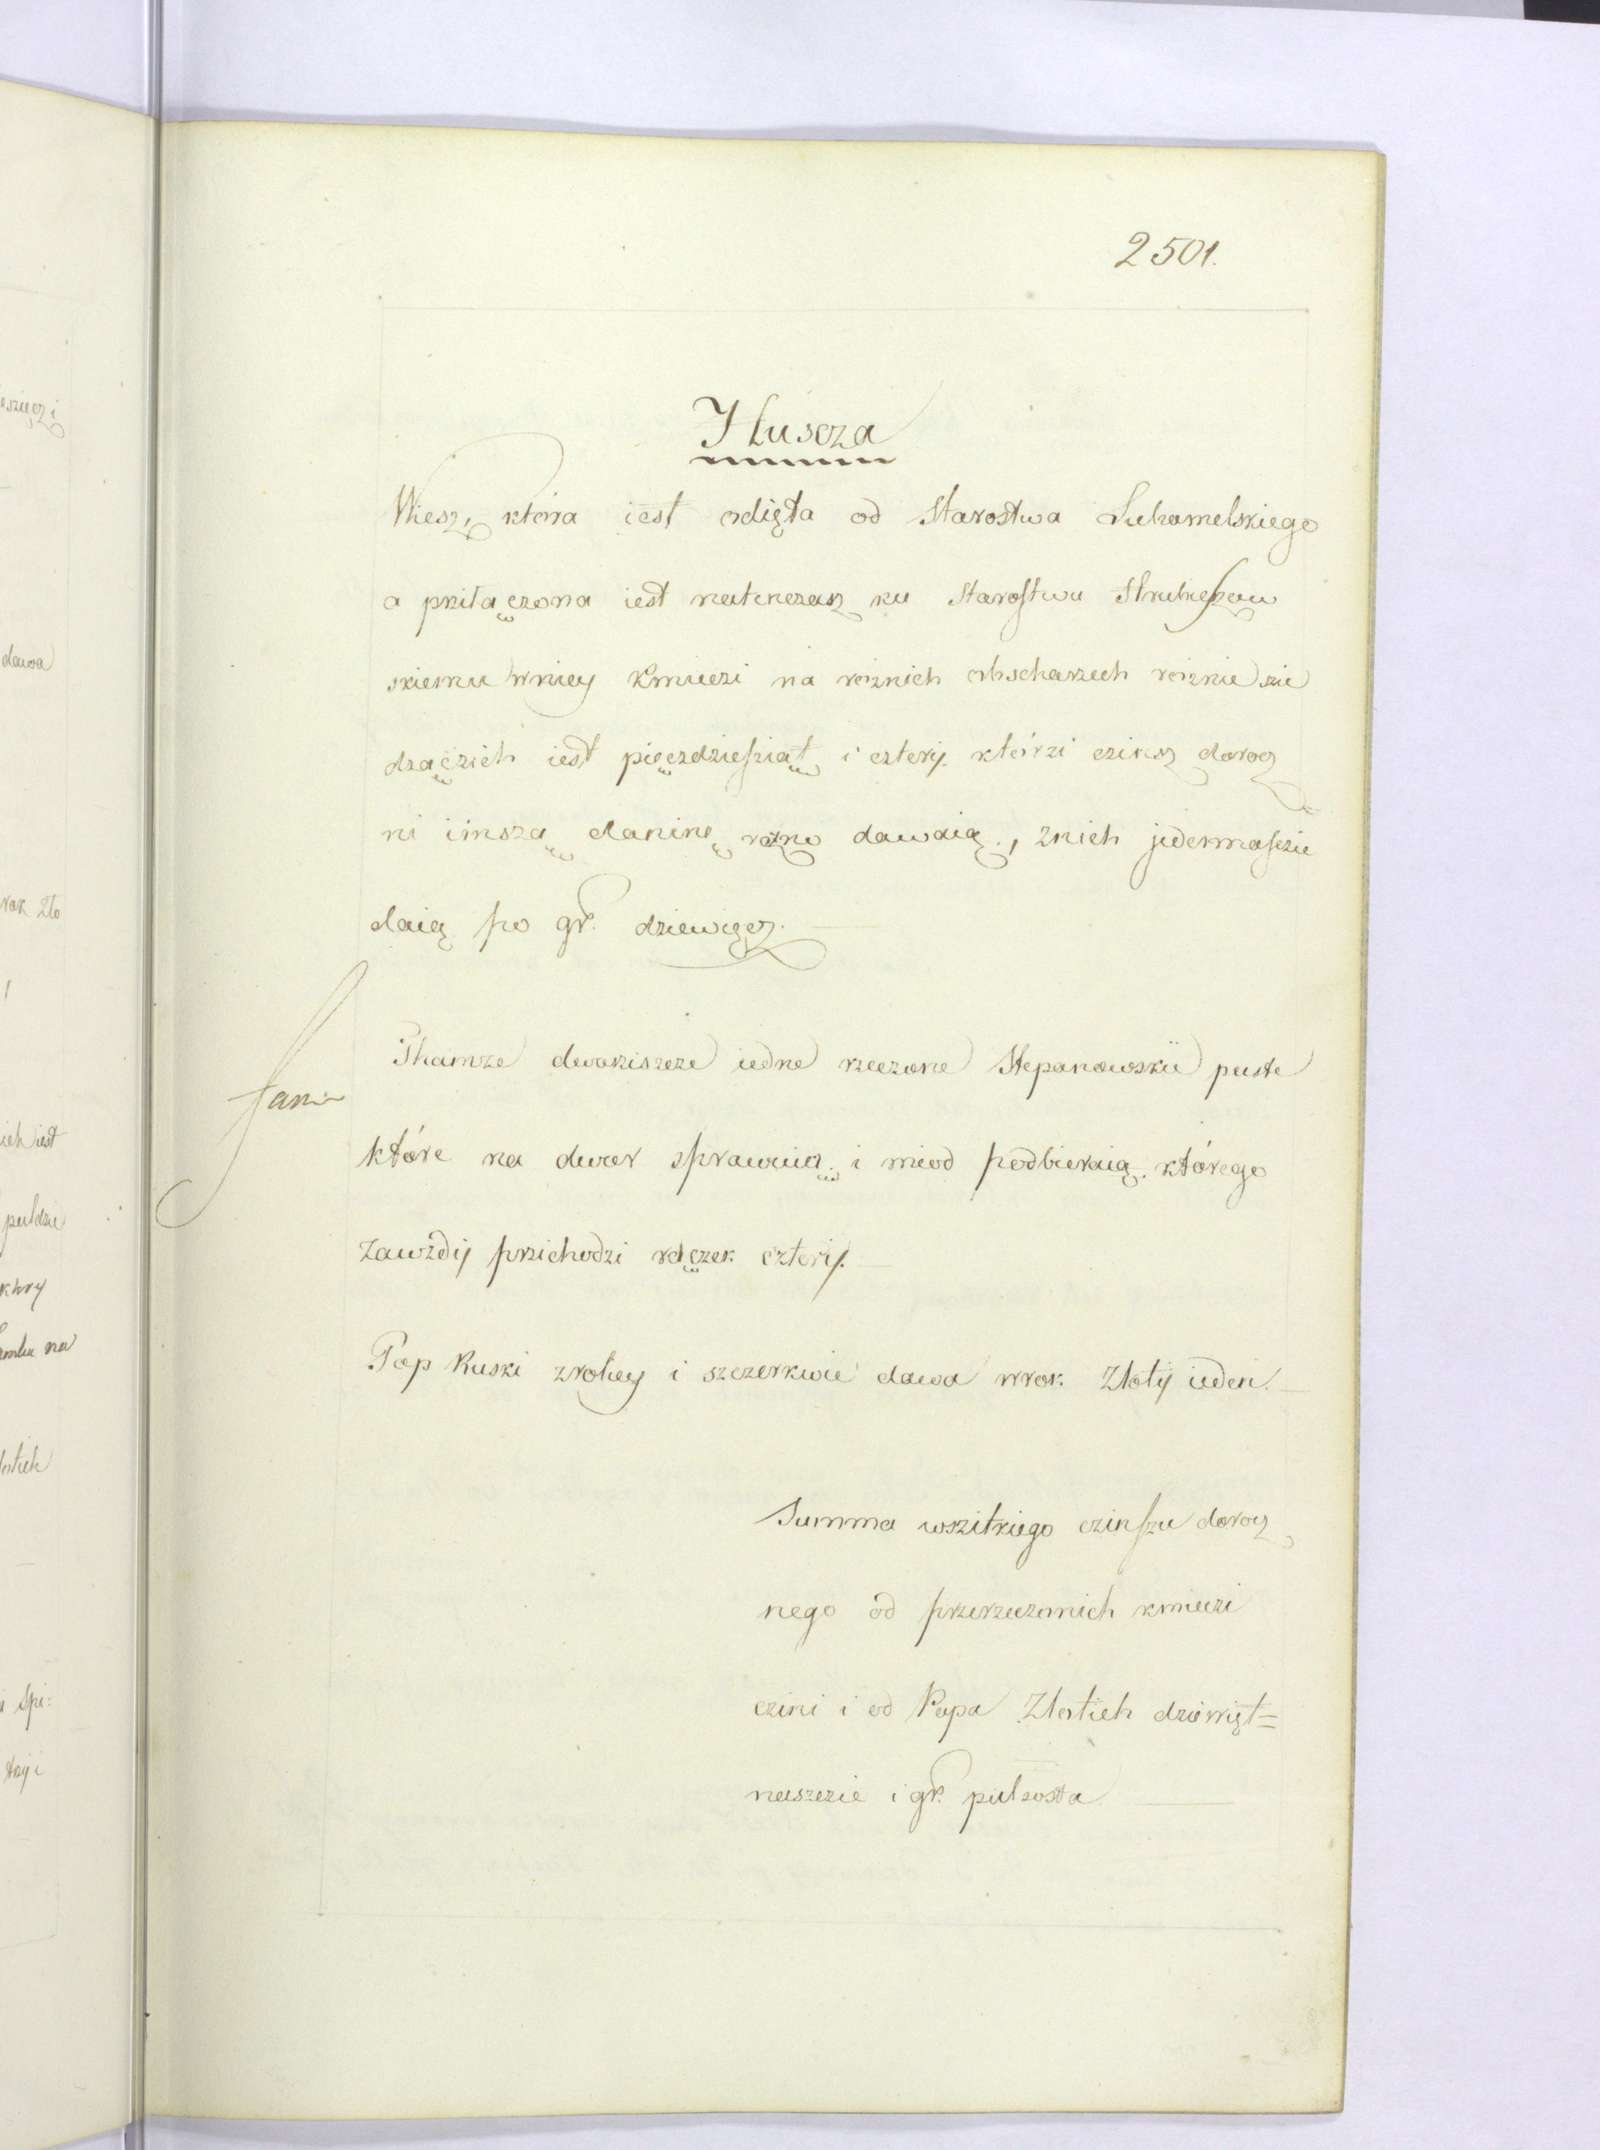 2501.
Hluscza
Wiesz, która iest odięta od Starostwa Luhamelskiego
a priłączona iest natenczasz ku Starostwu Hrubieszow
skiemu wniey Kmieczi na roznich obscharzech roznie sie
dzączich iest pięczdziesziąt i czterÿ. którzi czinsz dorocz
ni i inszą daninę rozno dawaią., znich jedennasczie
daią po gr. dziewięcz.
Thamze dworziszcze iedne rzeczone Stepanowskie puste
które na dwor sprawuią. i miod podbieraią. którego
Zawzdÿ przichodzi rączek czterÿ.
Pop Ruski zroliey i szczerkwie dawa wrok Złotÿ ieden.
Summa wszitkiego czinszu dorocz
nego od przerzeczonich kmieczi
czini i od Popa Złotich dziewięt=
nasczie i gr. pulzosta
dawa
rok Zło
ich iest